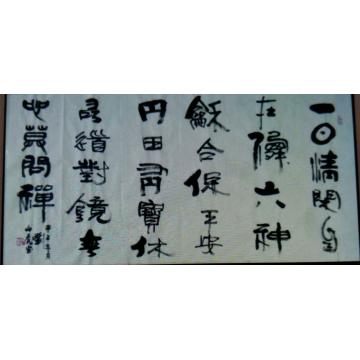 一日清閑自
在僊六神
龢合保平安
丹田有寶休
尋道對鏡無
心莫問禪